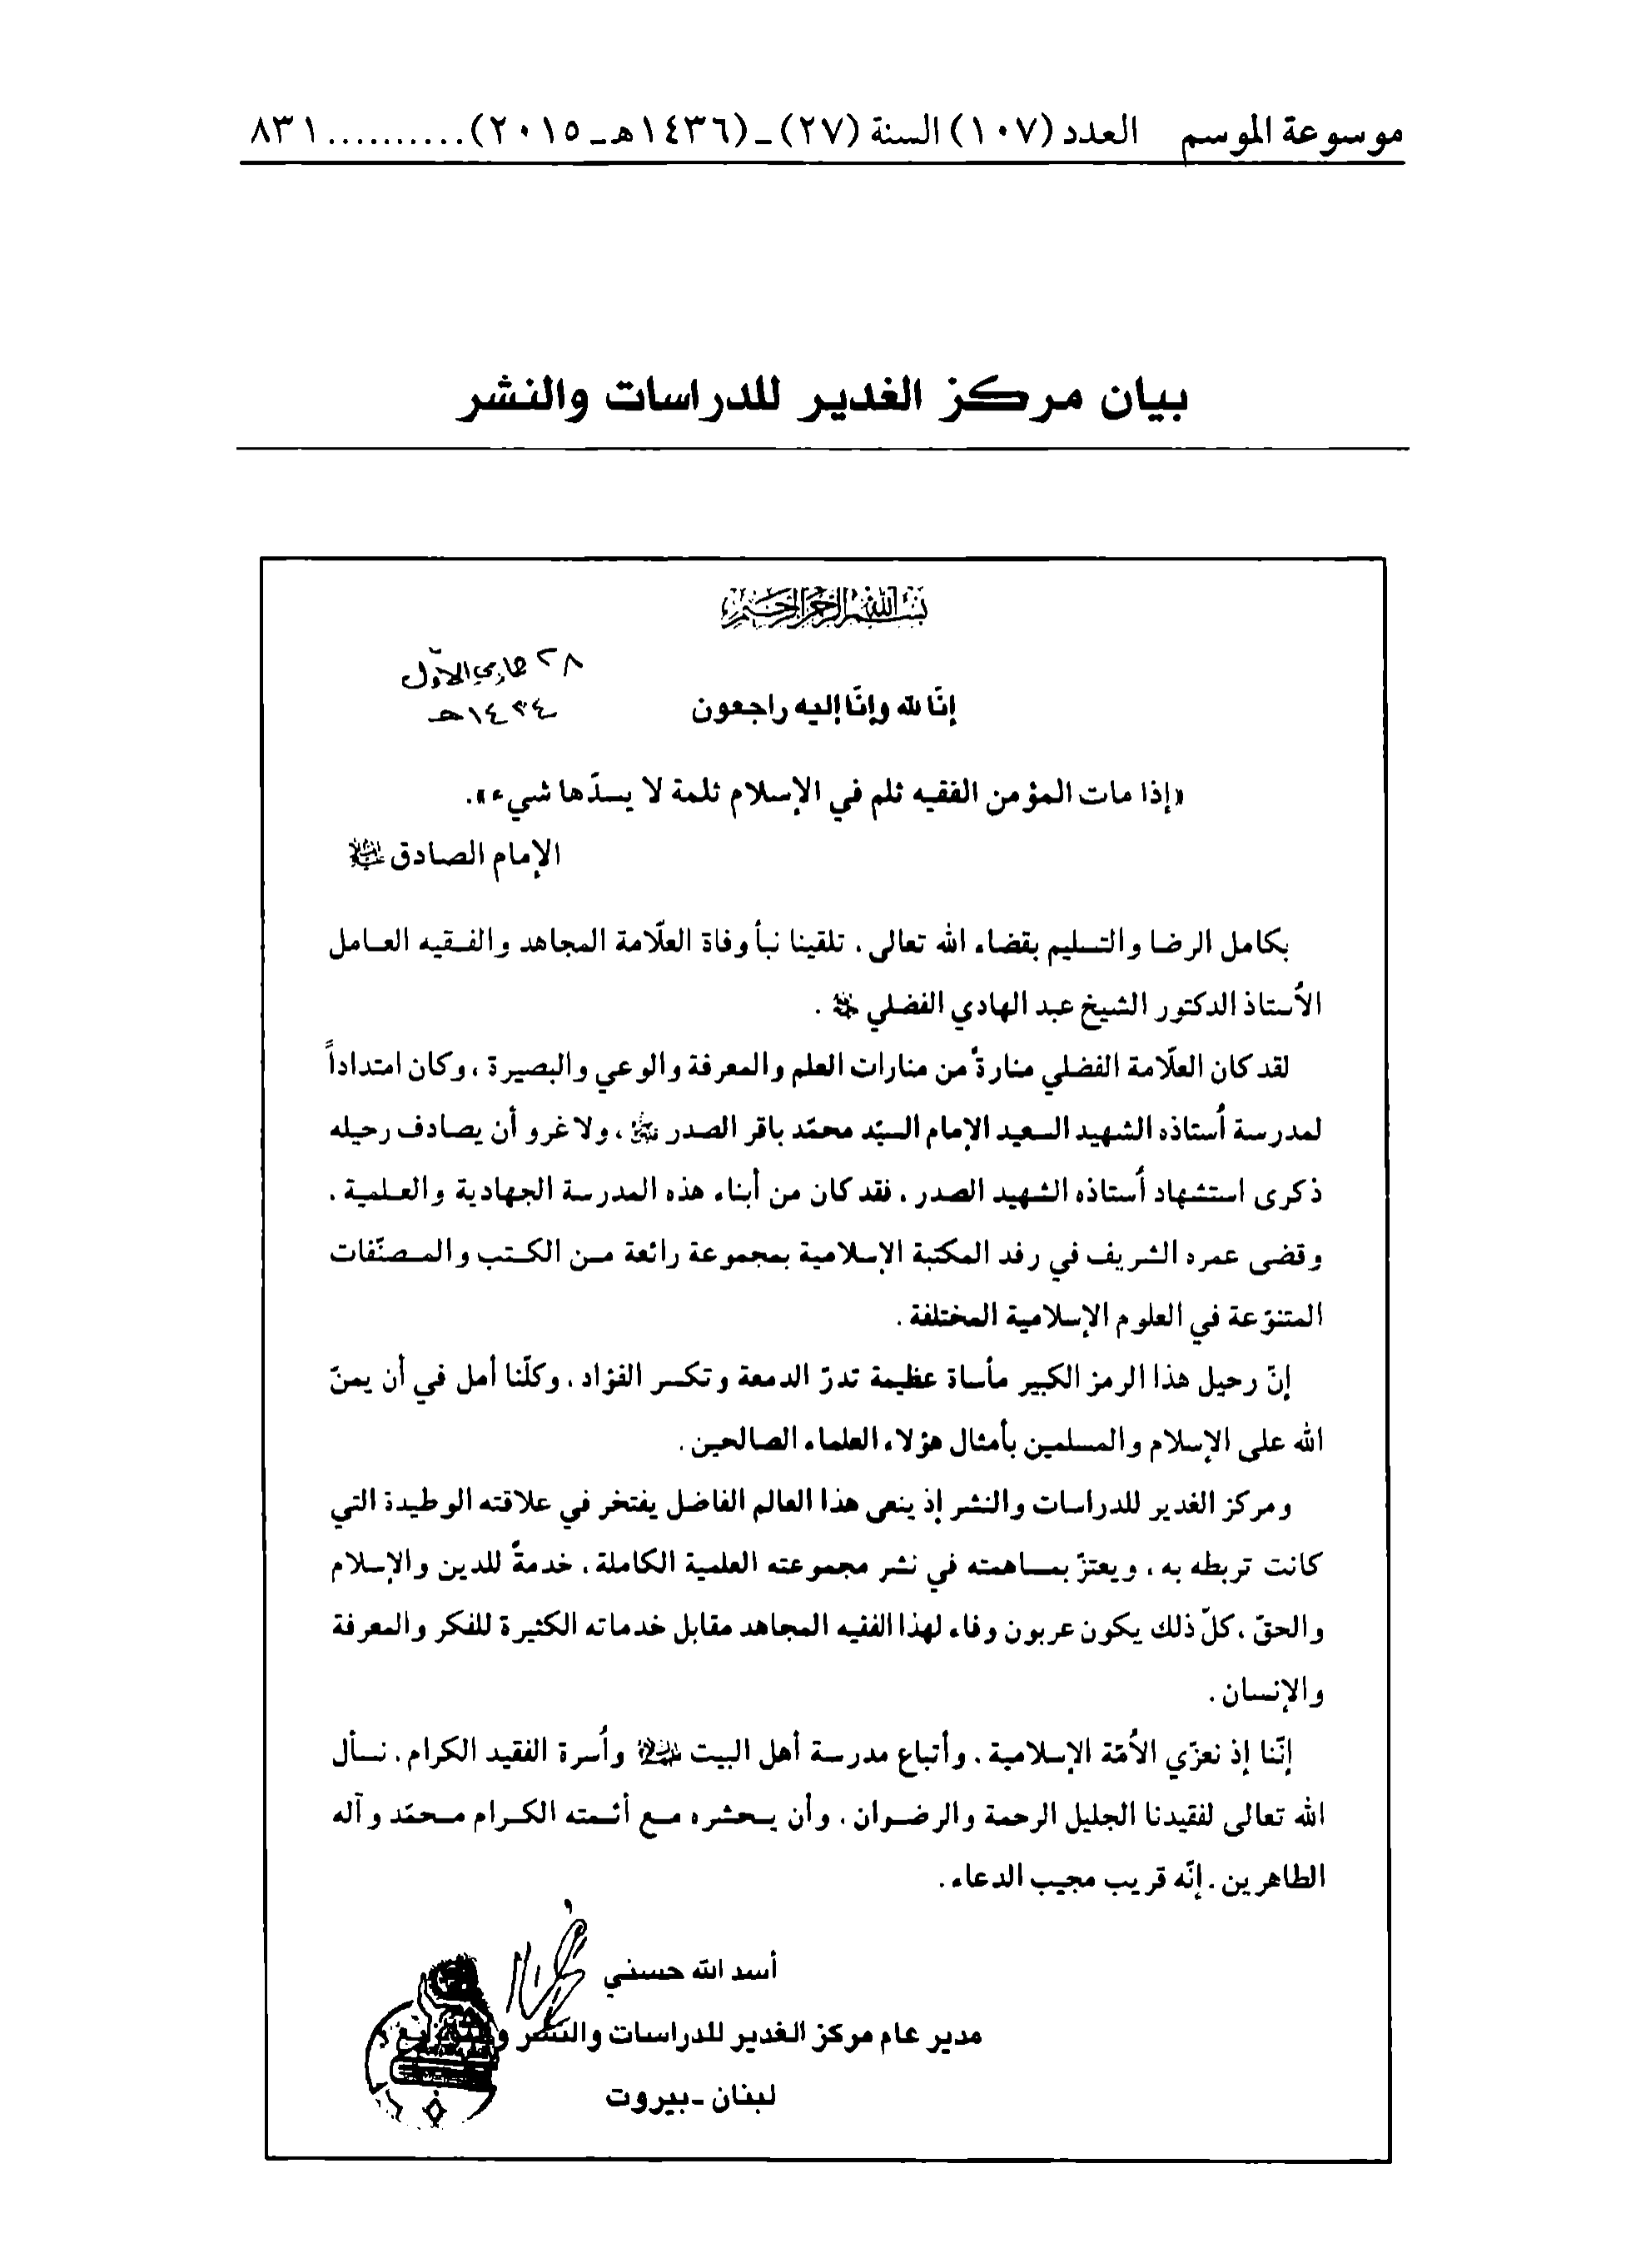 موسوعة الموسم العدد (١٠٧) السنة (٢٧) ـ (١٤٣٦هـ ـ ٢٠١٥)..........٨٣١
بيان مركز الغدير للدراسات والنشر
بسم الله الرحمن الرحيم
٢٨ جمادى الأوّل
١٤٣٤هـ
إنّا لله وإنّا إليه راجعون
«إذا مات المؤمن الفقيه ثلم في الإسلام ثلمة لا يسدّها شيء».
الإمام الصادق عليه السلام
بكامل الرضا والتسليم بقضاء الله تعالى، تلقينا نبأ وفاة العلّامة المجاهد والفقيه العامل
الأُستاذ الدكتور الشيخ عبد الهادي الفضلي .
لقد كان العلّامة الفضلي منارةً من منارات العلم والمعرفة والوعي والبصيرة، وكان امتداداً
لمدرسة أُستاذه الشهيد السعيد الإمام السيّد محمّد باقر الصدر ، ولا غرو أن يصادف رحيله
ذكرى استشهاد أُستاذه الشهيد الصدر، فقد كان من أبناء هذه المدرسة الجهادية والعلمية،
وقضى عمره الشريف في رفد المكتبة الإسلامية بمجموعة رائعة من الكتب والمصنّفات
المتنوّعة في العلوم الإسلامية المختلفة.
إنّ رحيل هذا الرمز الكبير مأساة عظيمة تدرّ الدمعة وتكسر الفؤاد، وكلّنا أمل في أن يمنّ
الله على الإسلام والمسلمين بأمثال هؤلاء العلماء الصالحين.
ومركز الغدير للدراسات والنشر إذ ينعى هذا العالم الفاضل يفتخر في علاقته الوطيدة التي
كانت تربطه به، ويعتزّ بمساهمته في نشر مجموعته العلمية الكاملة، خدمةً للدين والإسلام
والحقّ، كلّ ذلك يكون عربون وفاء لهذا الفقيه المجاهد مقابل خدماته الكثيرة للفكر والمعرفة
والإنسان.
إنّنا إذ نعزّي الأُمّة الإسلامية، وأتباع مدرسة أهل البيت عليهم السلام وأُسرة الفقيد الكرام، نسأل
الله تعالى لفقيدنا الجليل الرحمة والرضوان، وأن يحشره مع أئمته الكرام محمّد وآله
الطاهرين، إنّه قريب مجيب الدعاء.
أسد الله حسني
مدير عام مركز الغدير للدراسات والنشر والتوزيع
لبنان ـ بيروت